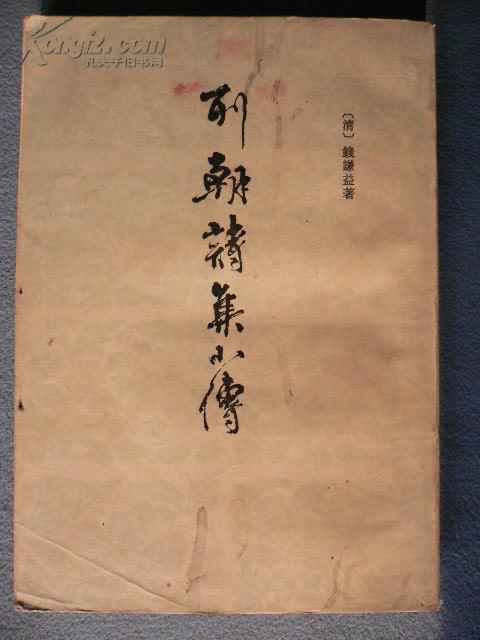 Kongfz.com
孔夫子旧书网
〔清〕錢謙益著
列朝詩集小傳